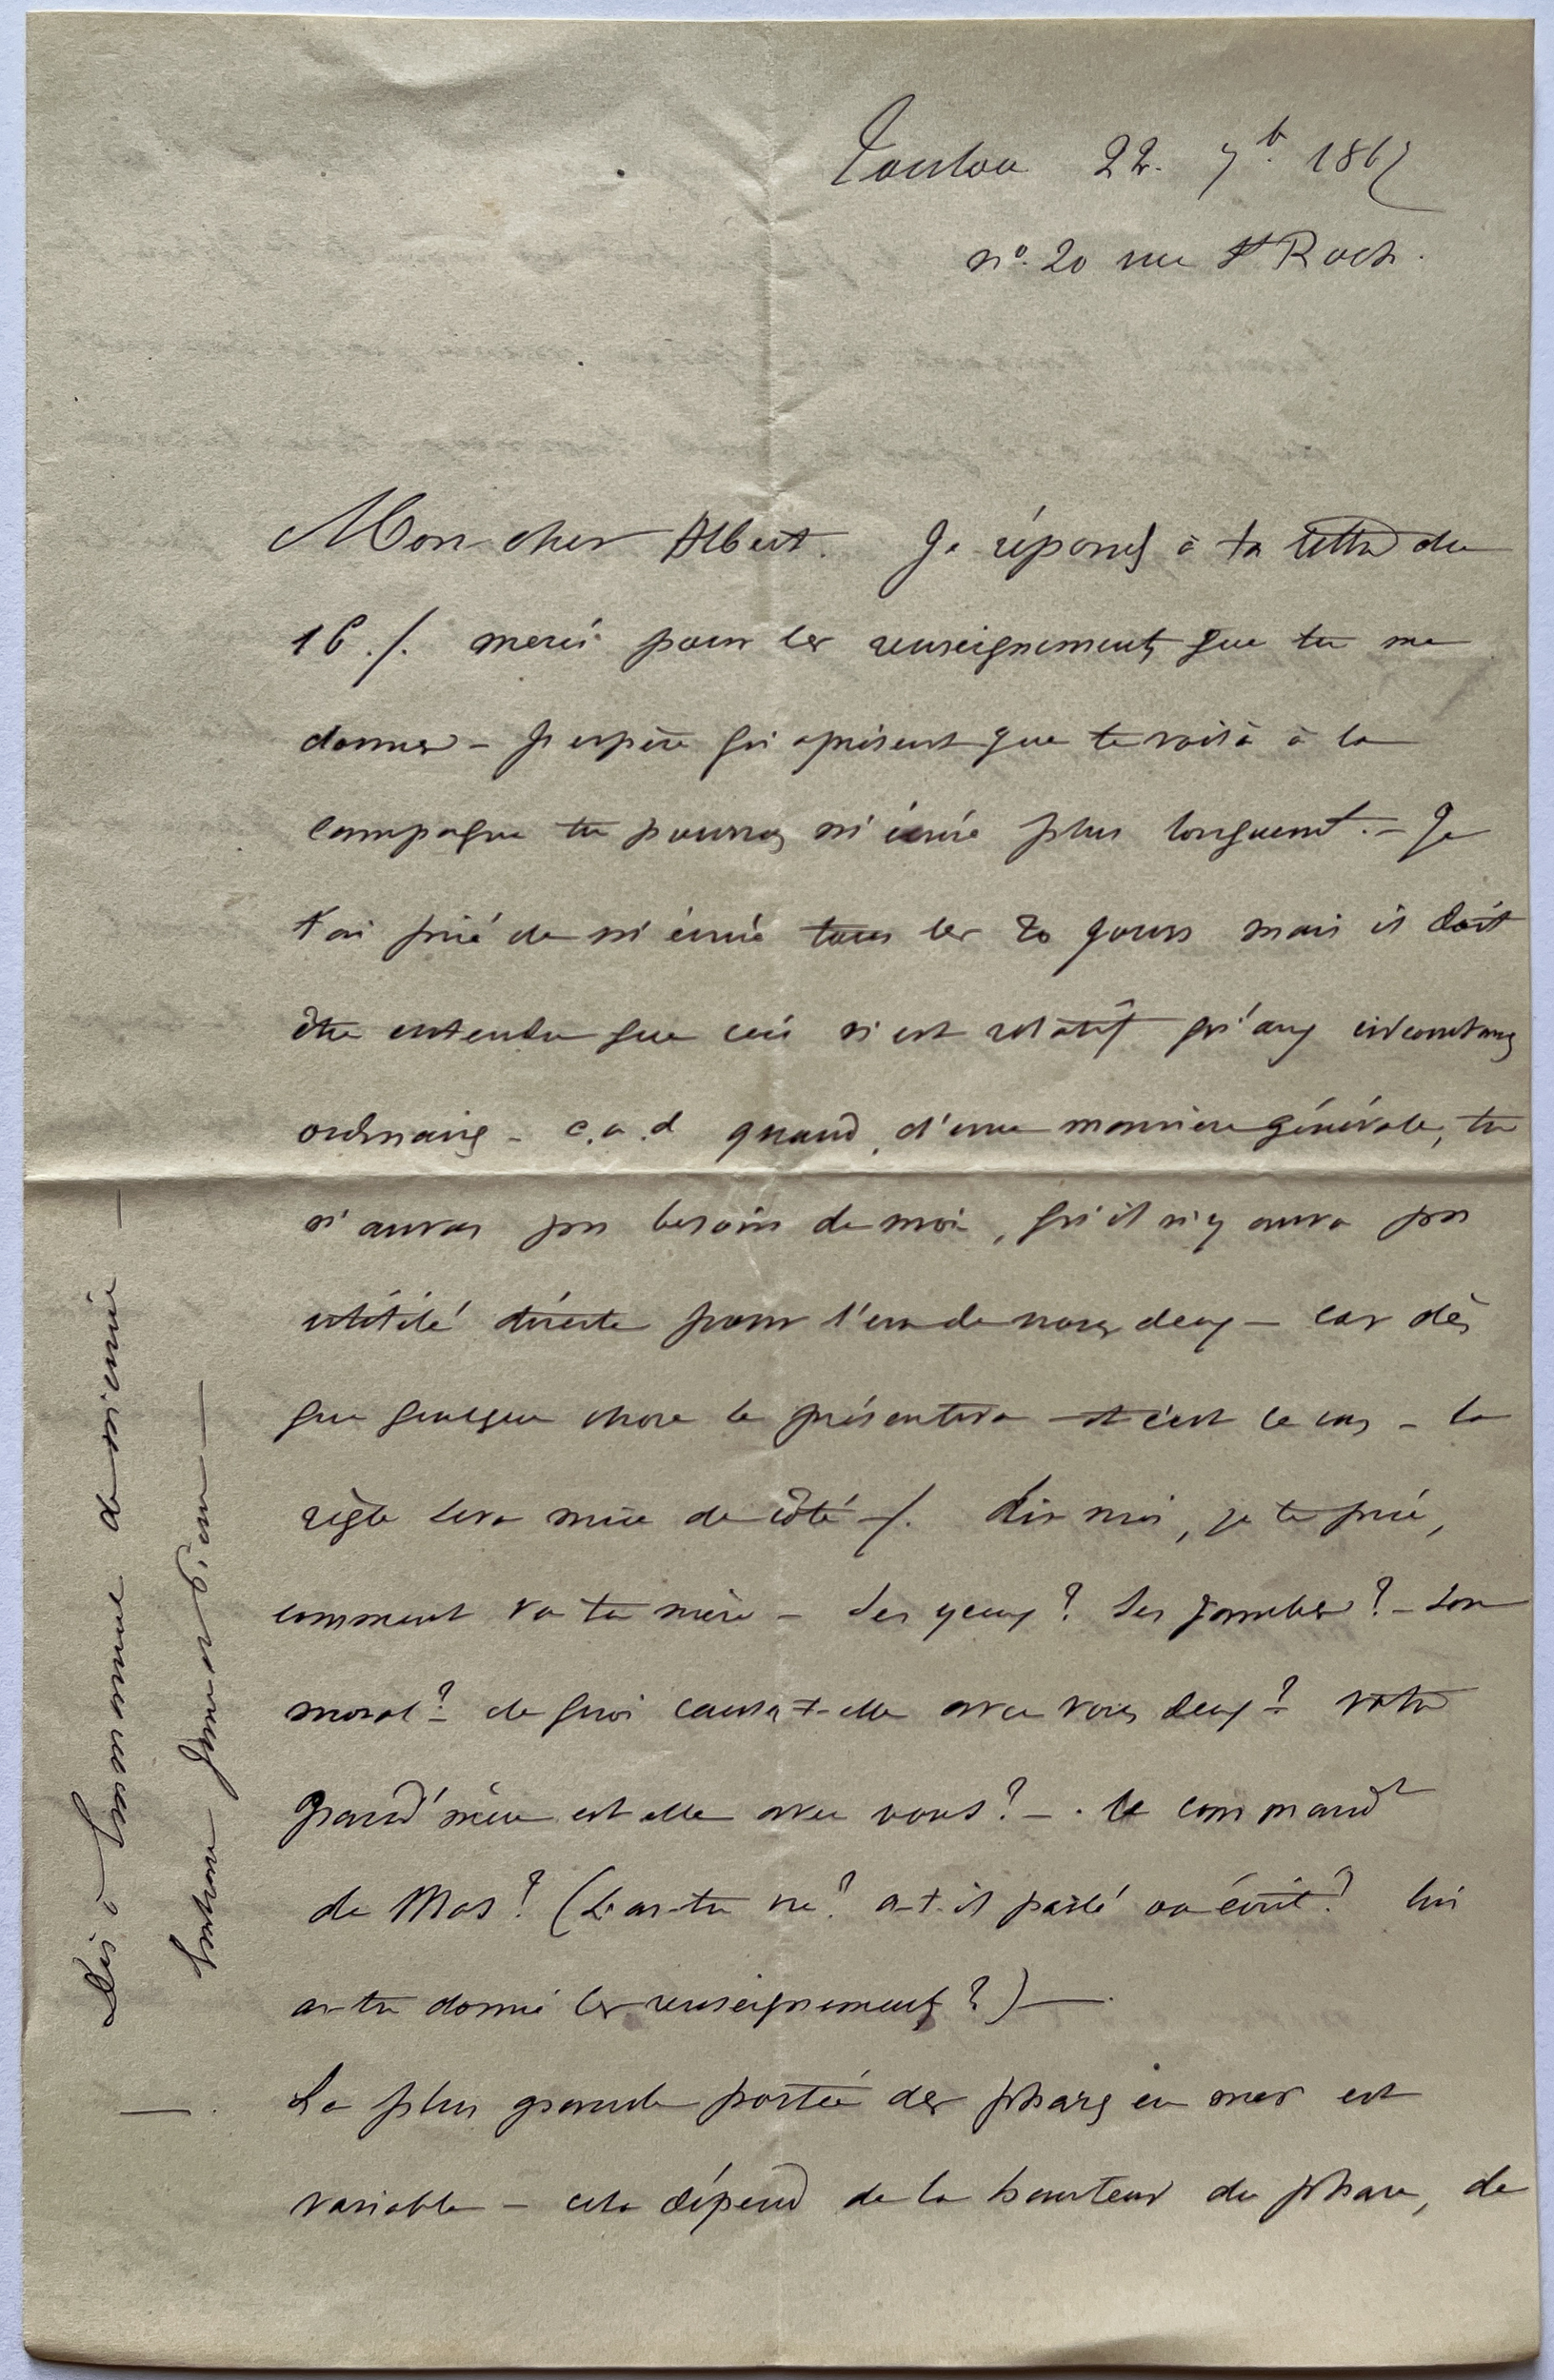 Toulon 22. 7b. 186
n° 20 rue St Roch.
Mon cher Albert. Je réponds à ta lettre du
16 ./. merci pour les renseignements que tu me
donnes - J'espère qu'à présent que te voilà à la
campagne tu pourras m'écrire plus longuemt. - Je
t'ai prié de m'écrire tous les 20 jours mais il doit
être entendu que ceci n'est relatif qu'aux circonstances
ordinaires - c.a.d quand, d'une manière générale, tu
n'auras pas besoin de moi, qu'il n'y aura pas
utilité directe pour l'un de nous deux - car dès
que quelque chose se présentera - et c'est le cas - la
règle sera mise de côté -/. Dis moi, je te prie,
comment va ta mère - Ses yeux? Ses jambes? - Son
moral? de quoi cause-t-elle avec vous deux? votre
grand'mère est elle avec vous? - . le commandt
de Mas? (L'as-tu vu? a-t-il parlé ou écrit? lui
as-tu donné les renseignements?) -.
La plus grande portée des phares en mer est
variable - cela dépend de la hauteur du phare, de
Dis à Emmanuel de m'écrire -